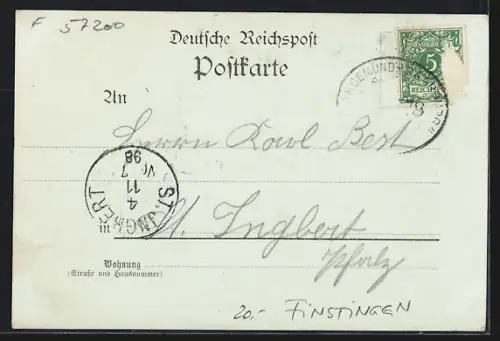 F 57200
Deutsche Reichspost
Postkarte
5
REICHSPOST
An
Herrn Karl Best
ST. INGBERT
4
11
7
98
in St. Ingbert
Pfalz
Wohnung
(Straße und Hausnummer)
20.- FINSTINGEN